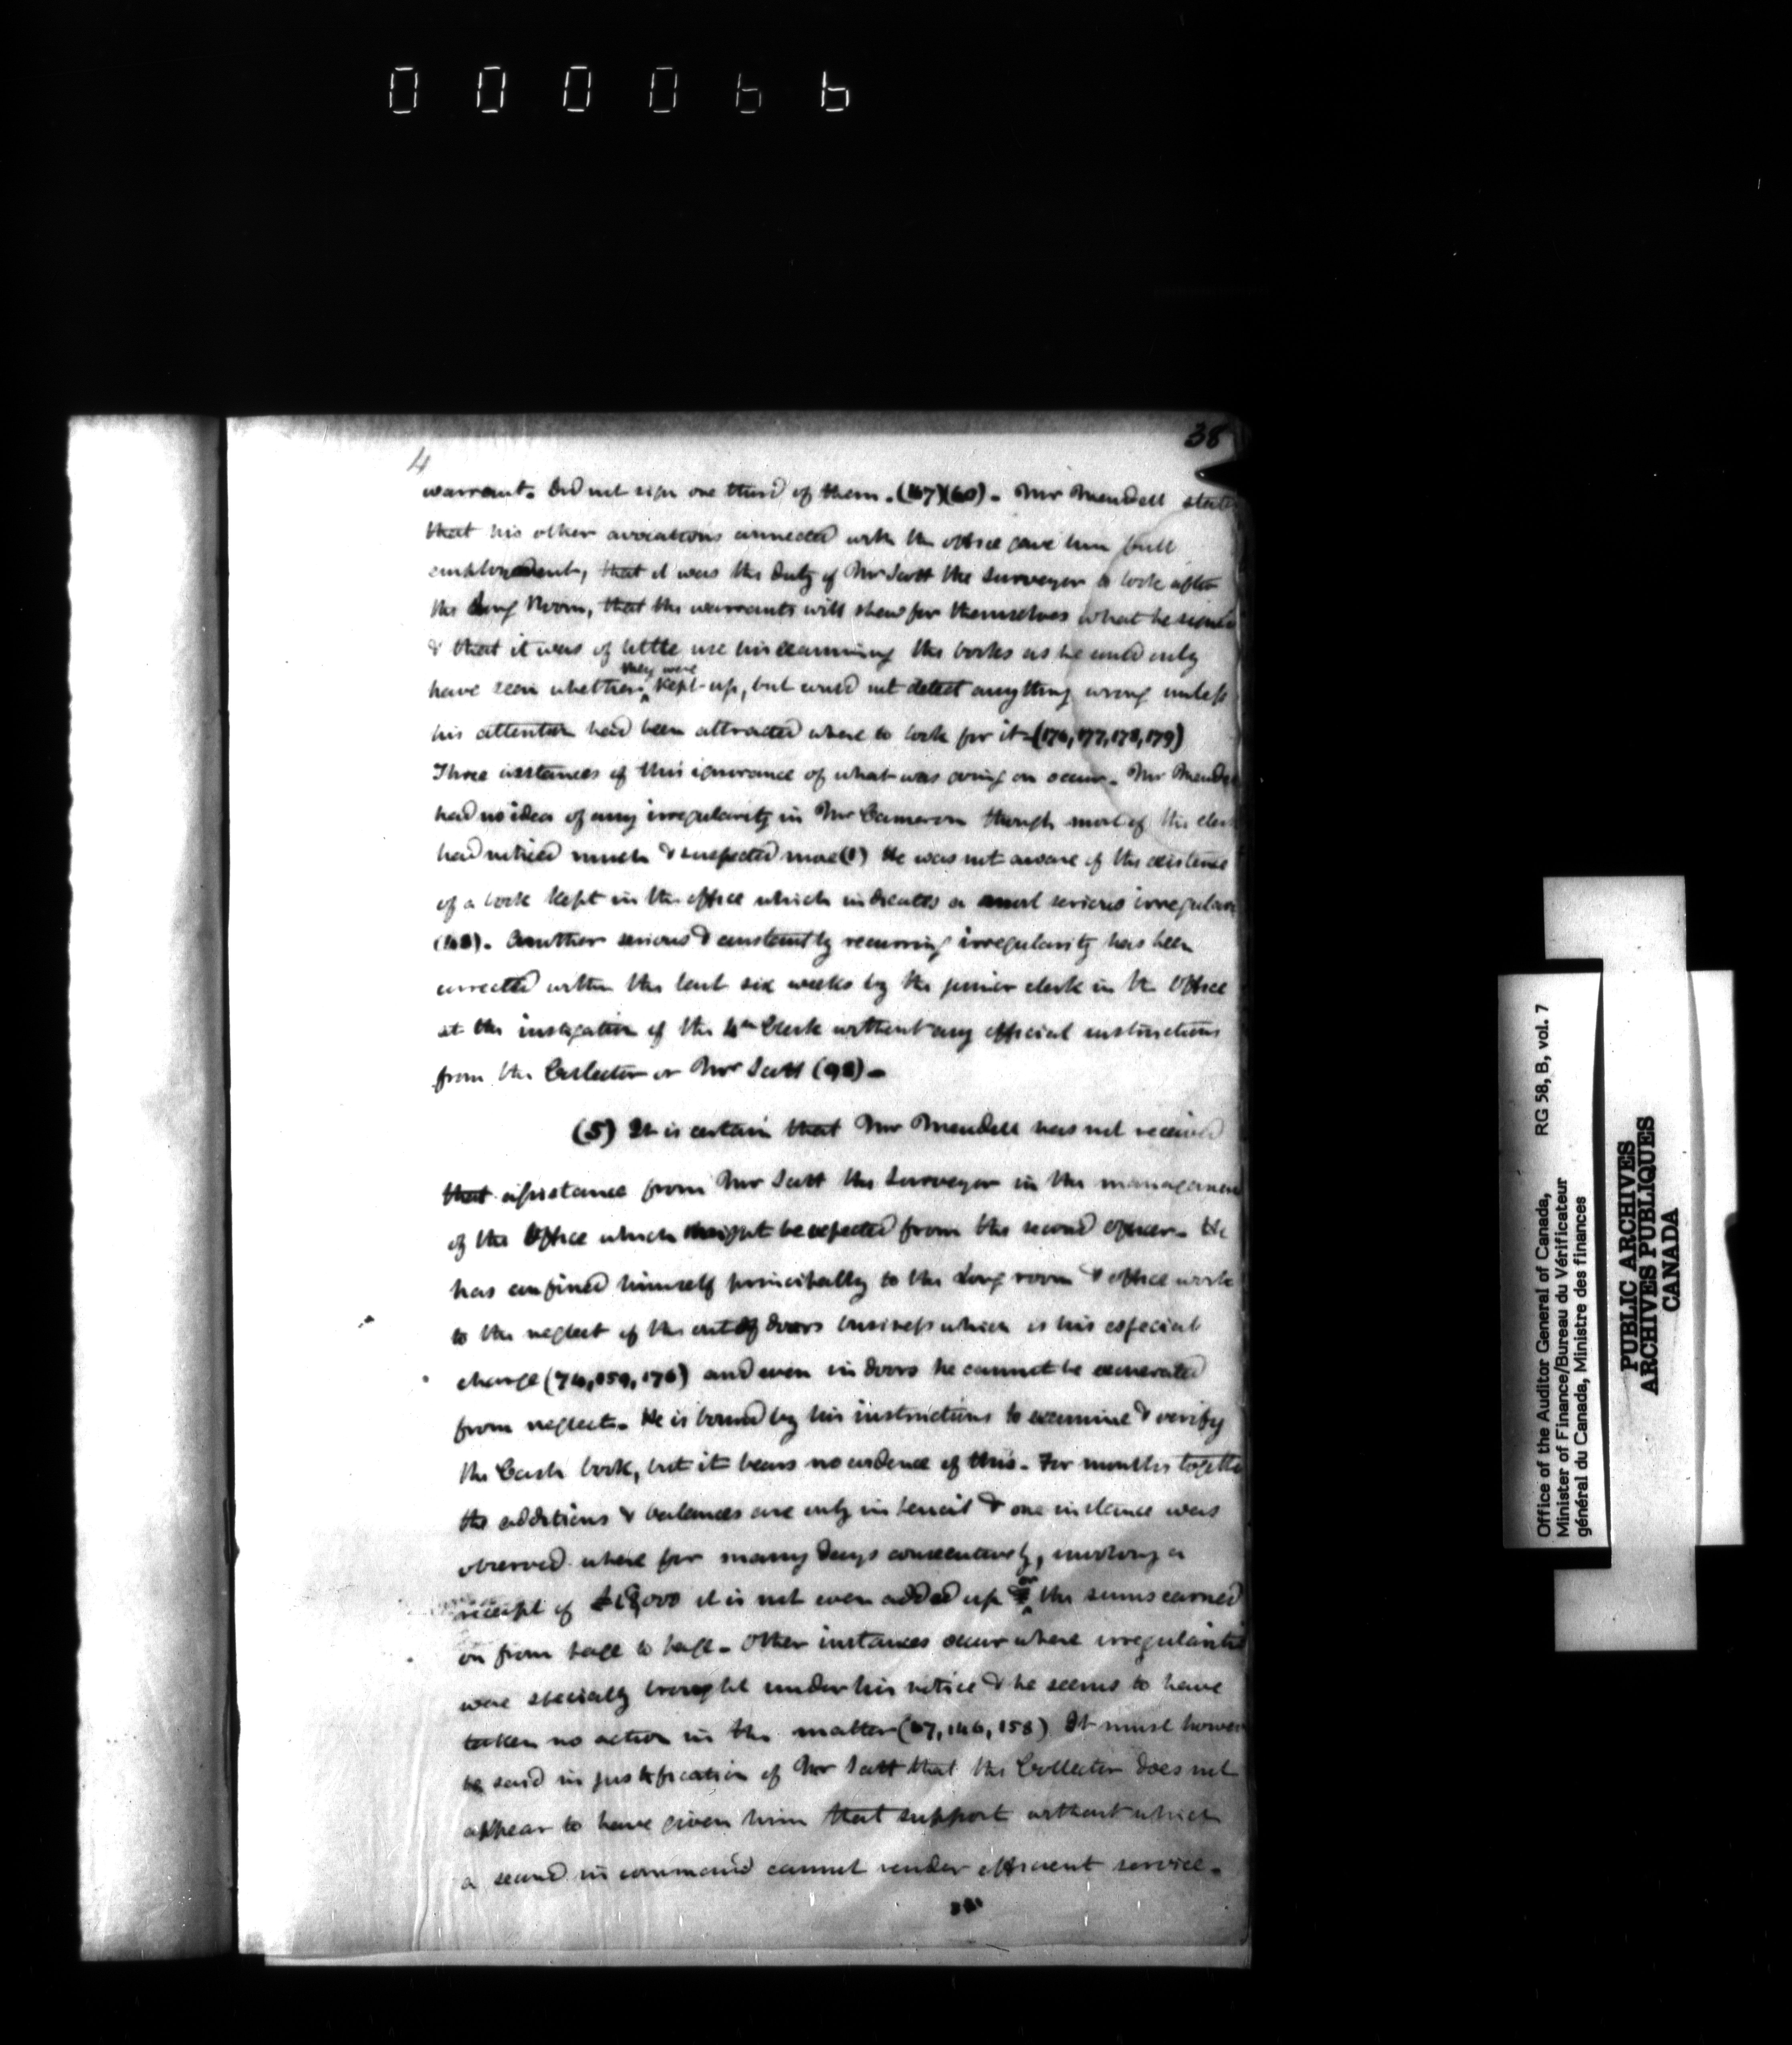 000066
38
4
warrant. Did not sign one third of them. (47)(60) - Mr Meudell states
that his other avocations connected with the office gave him full
employment, that it was the duty of Mr Scott the Surveyor to look after
the Long Room, that the warrants will shew for themselves what he signed
& that it was of little use his examining the books as he could only
they were
have seen whether ‸ kept up, but could not detect anything wrong unless
his attention had been attracted where to look for it - (176, 177, 178, 179)
Three instances of this ignorance of what was going on occur. Mr Meudell
had no idea of any irregularity in Mr Cameron though most of the clerks
had noticed much & suspected more (1) He was not aware of the existence
of a book kept in the office which indicates a most serious irregularity
(48). Another serious & constantly recurring irregularity has been
corrected within the last six weeks by the junior clerk in the Office
at the instigation of the 4th Clerk without any official instructions
from the Collector or Mr Scott (98) -
(5) It is certain that Mr Meudell has not received
that assistance from Mr Scott the Surveyor in the management
of the Office which might be expected from the second officer. He
has confined himself principally to the Long room & office work
to the neglect of the out of doors business which is his especial
charge (74, 159, 176) and even in doors he cannot be exonerated
from neglect. He is bound by his instructions to examine & verify
the Cash book, but it bears no evidence of this. For months together
the additions & balances are only in pencil & one instance was
observed where for many days consecutively, involving a
receipt of £18,000 it is not even added up or the sums carried
on from page to page. Other instances occur where irregularities
were specially brought under his notice & he seems to have
taken no action in the matter (47, 146, 158) It must however
be said in justification of Mr Scott that the Collector does not
appear to have given him that support without which
a second in command cannot render efficient service.
Office of the Auditor General of Canada, RG 58, B, vol. 7
Minister of Finance/Bureau du Vérificateur
général du Canada, Ministre des finances
PUBLIC ARCHIVES
ARCHIVES PUBLIQUES
CANADA